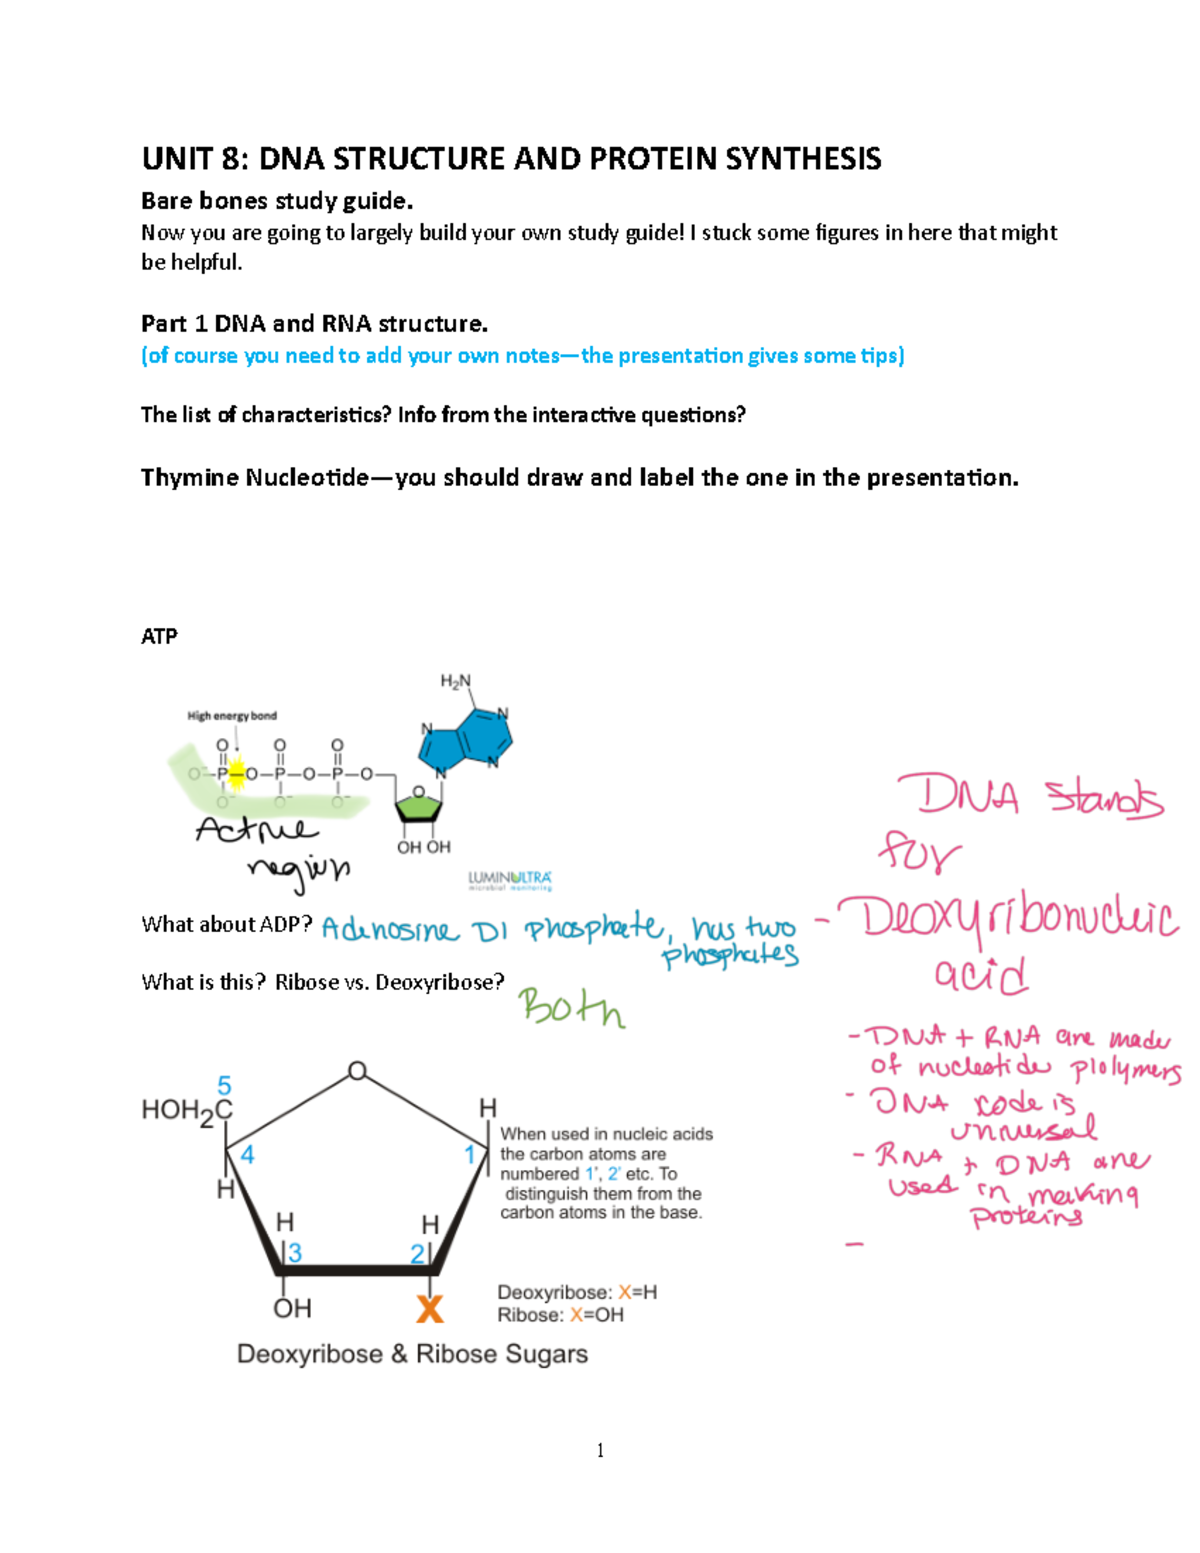 UNIT 8: DNA STRUCTURE AND PROTEIN SYNTHESIS
Bare bones study guide.
Now you are going to largely build your own study guide! I stuck some figures in here that might
be helpful.
Part 1 DNA and RNA structure.
(of course you need to add your own notes—the presentation gives some tips)
The list of characteristics? Info from the interactive questions?
Thymine Nucleotide—you should draw and label the one in the presentation.
ATP
H2N
High energy bond
N
N
N
N
O
O
O
O⁻–P–O–P–O–P–O
O⁻
O⁻
O⁻
O
OH OH
Active
region
LUMINULTRA
microbial monitoring
What about ADP? Adenosine DI phosphate, has two
phosphates
What is this? Ribose vs. Deoxyribose?
Both
DNA stands
for
- Deoxyribonucleic
acid
- DNA + RNA are made
of nucleotide plolymers
- DNA code is
universal
- RNA + DNA are
used in making
proteins
-
O
5
HOH2C
H
4
1
H
H
H
3
2
OH
X
When used in nucleic acids
the carbon atoms are
numbered 1', 2' etc. To
distinguish them from the
carbon atoms in the base.
Deoxyribose: X=H
Ribose: X=OH
Deoxyribose & Ribose Sugars
1